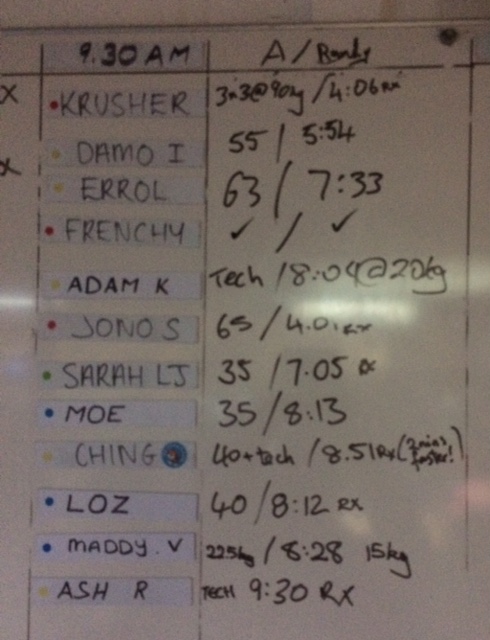 9.30 AM A / Randy
X KRUSHER 3x3@90kg / 4:06 RX
X DAMO I 55 / 5:54
ERROL 63 / 7:33
FRENCHY ✓ / ✓
ADAM K Tech / 8:04@20kg
JONO S 65 / 4.01 RX
SARAH LJ 35 / 7.05 RX
MOE 35 / 8:13
CHING 40+tech / 8.51 RX (2mins faster!)
LOZ 40 / 8:12 RX
MADDY.V 22.5kg / 8:28 15kg
ASH R TECH 9:30 RX